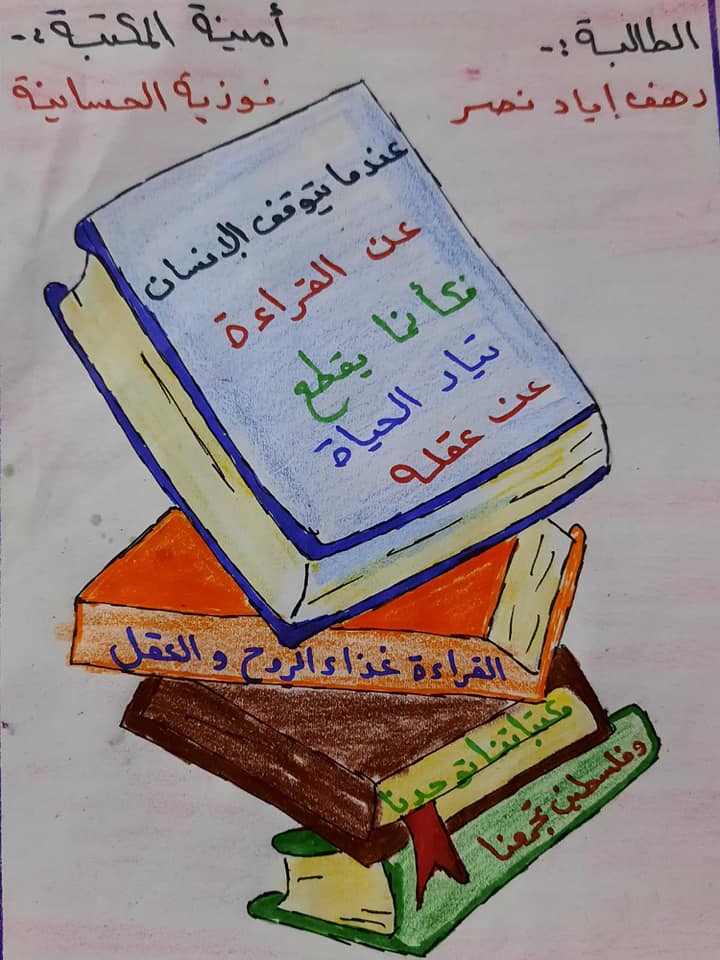 الطالبة :-
رهف إياد نصر
أمينة المكتبة :-
فوزية الحساينة
عندما يتوقف الإنسان
عن القراءة
فكأنما يقطع
تيار الحياة
عن عقله
القراءة غذاء الروح و العقل
مكتباتنا توحدنا
وفلسطين تجمعنا